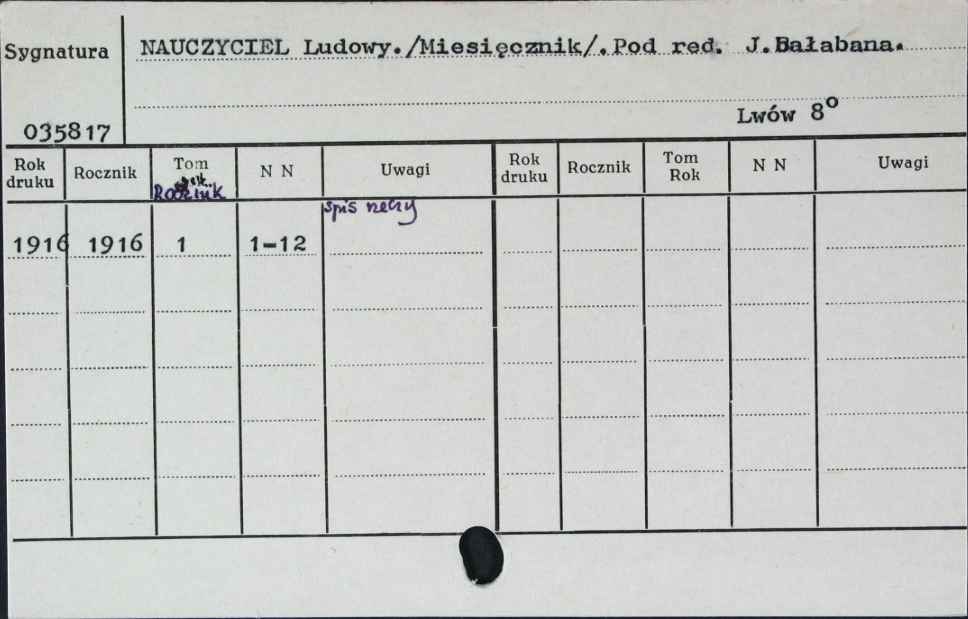 Sygnatura
NAUCZYCIEL Ludowy./Miesięcznik/.Pod red. J.Bałabana.
035817
Lwów 8°
Rok druku Rocznik Tom N N Uwagi Rok druku Rocznik Tom Rok N N Uwagi
Rocznik
spis rzeczy
1916 1916 1 1-12